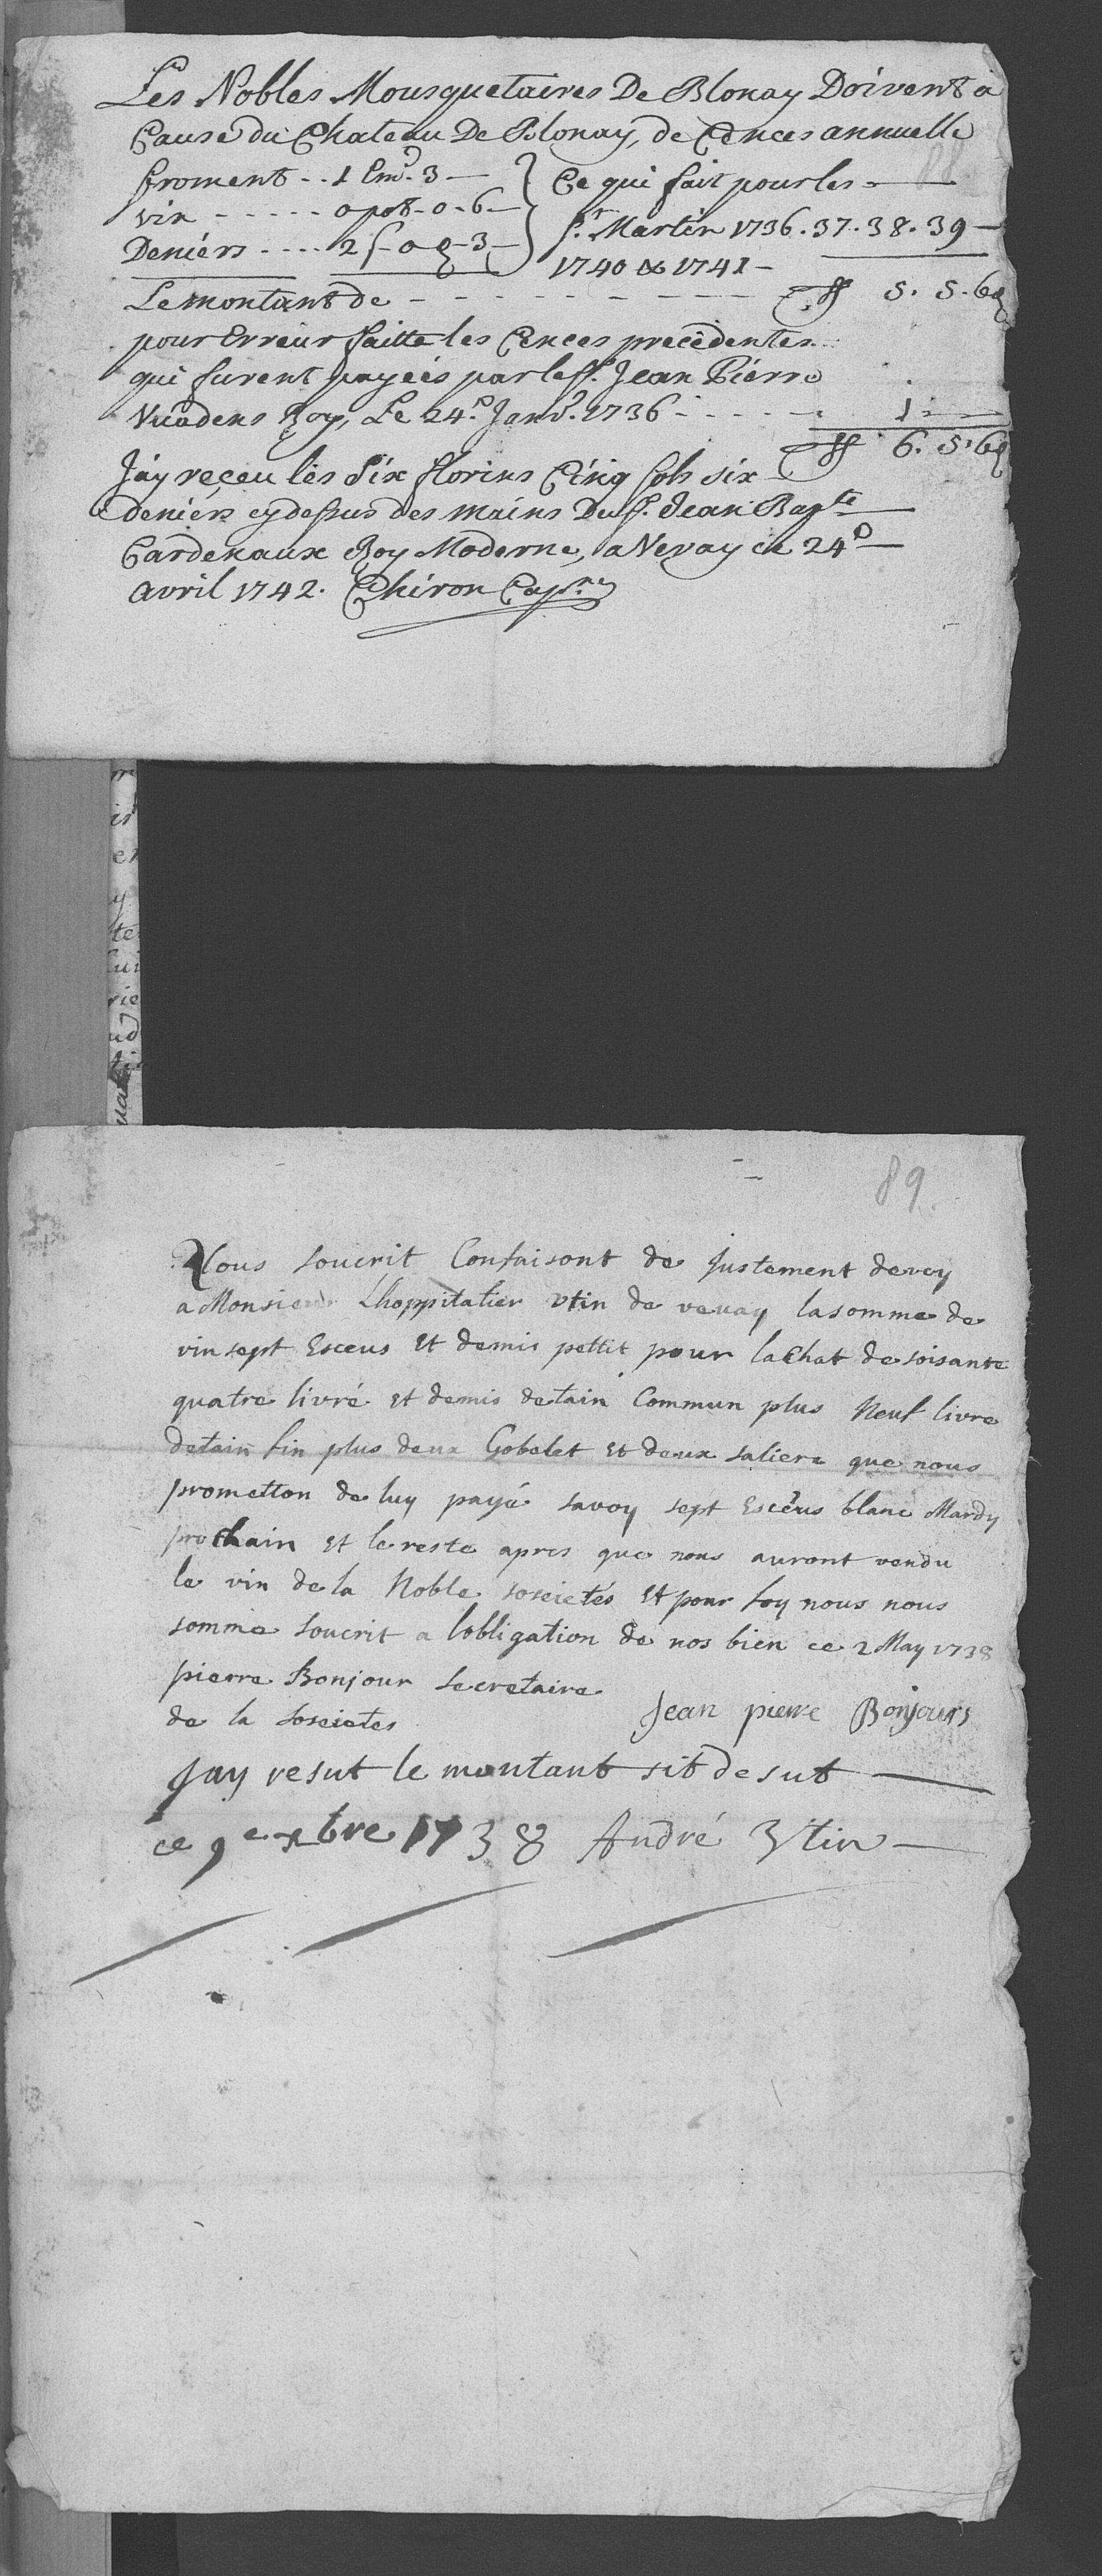 Les Nobles Mousquetaires De Blonay Doivent à
Cause du Chateau De Blonay, de Cences annuelle
88
froment - - 1 Em. 3 — Ce qui fait pour les —
vin - - - - - 0 pot - 0 - 6 — St. Martin 1736. 37. 38. 39 —
Deniérs - - - - 2 s - 0 d - 3 — 1740 & 1741 —
Le montant de - - - - - - - - ff 5. 5. 6d
pour Erreur faitte les Cences precedentes
qui furent payeés par le Sr. Jean Piérre
Vuadens Roy, Le 24e. Janv. 1736 - - - - - 1 - —
ff 6. 5. 6d
J'áy reçeu lès Six florins Cinq sols six
deniérs cy dessus des mains Du Sr. Jean Bapte
Cardenaux Roy Moderne, a Vevay ce 24e —
avril 1742. Chiron Capne
89
Nous soucrit Confaisont de justement devoy
a Monsieur Lhoppitalier Utin de vevay la somme de
vin sept Esceus Et demis pettit pour lachat de soisante
quatre livré et demis detain Commun plus Neuf livre
detain fin plus deux Gobelet et deux saliere que nous
prometton de luy payé savoy sept Escéus blanc Mardy
prochain et le reste apres que nous auront vendu
le vin de la Noble sosciétés Et pour foy nous nous
somme soucrit a lobligation de nos bien ce 2 May 1738
pierre Bonjour secretaire
de la sosciétes Jean pierre Bonjours
Jay resut le montant sit desut —
ce 9e xbre 1738 André Utin —